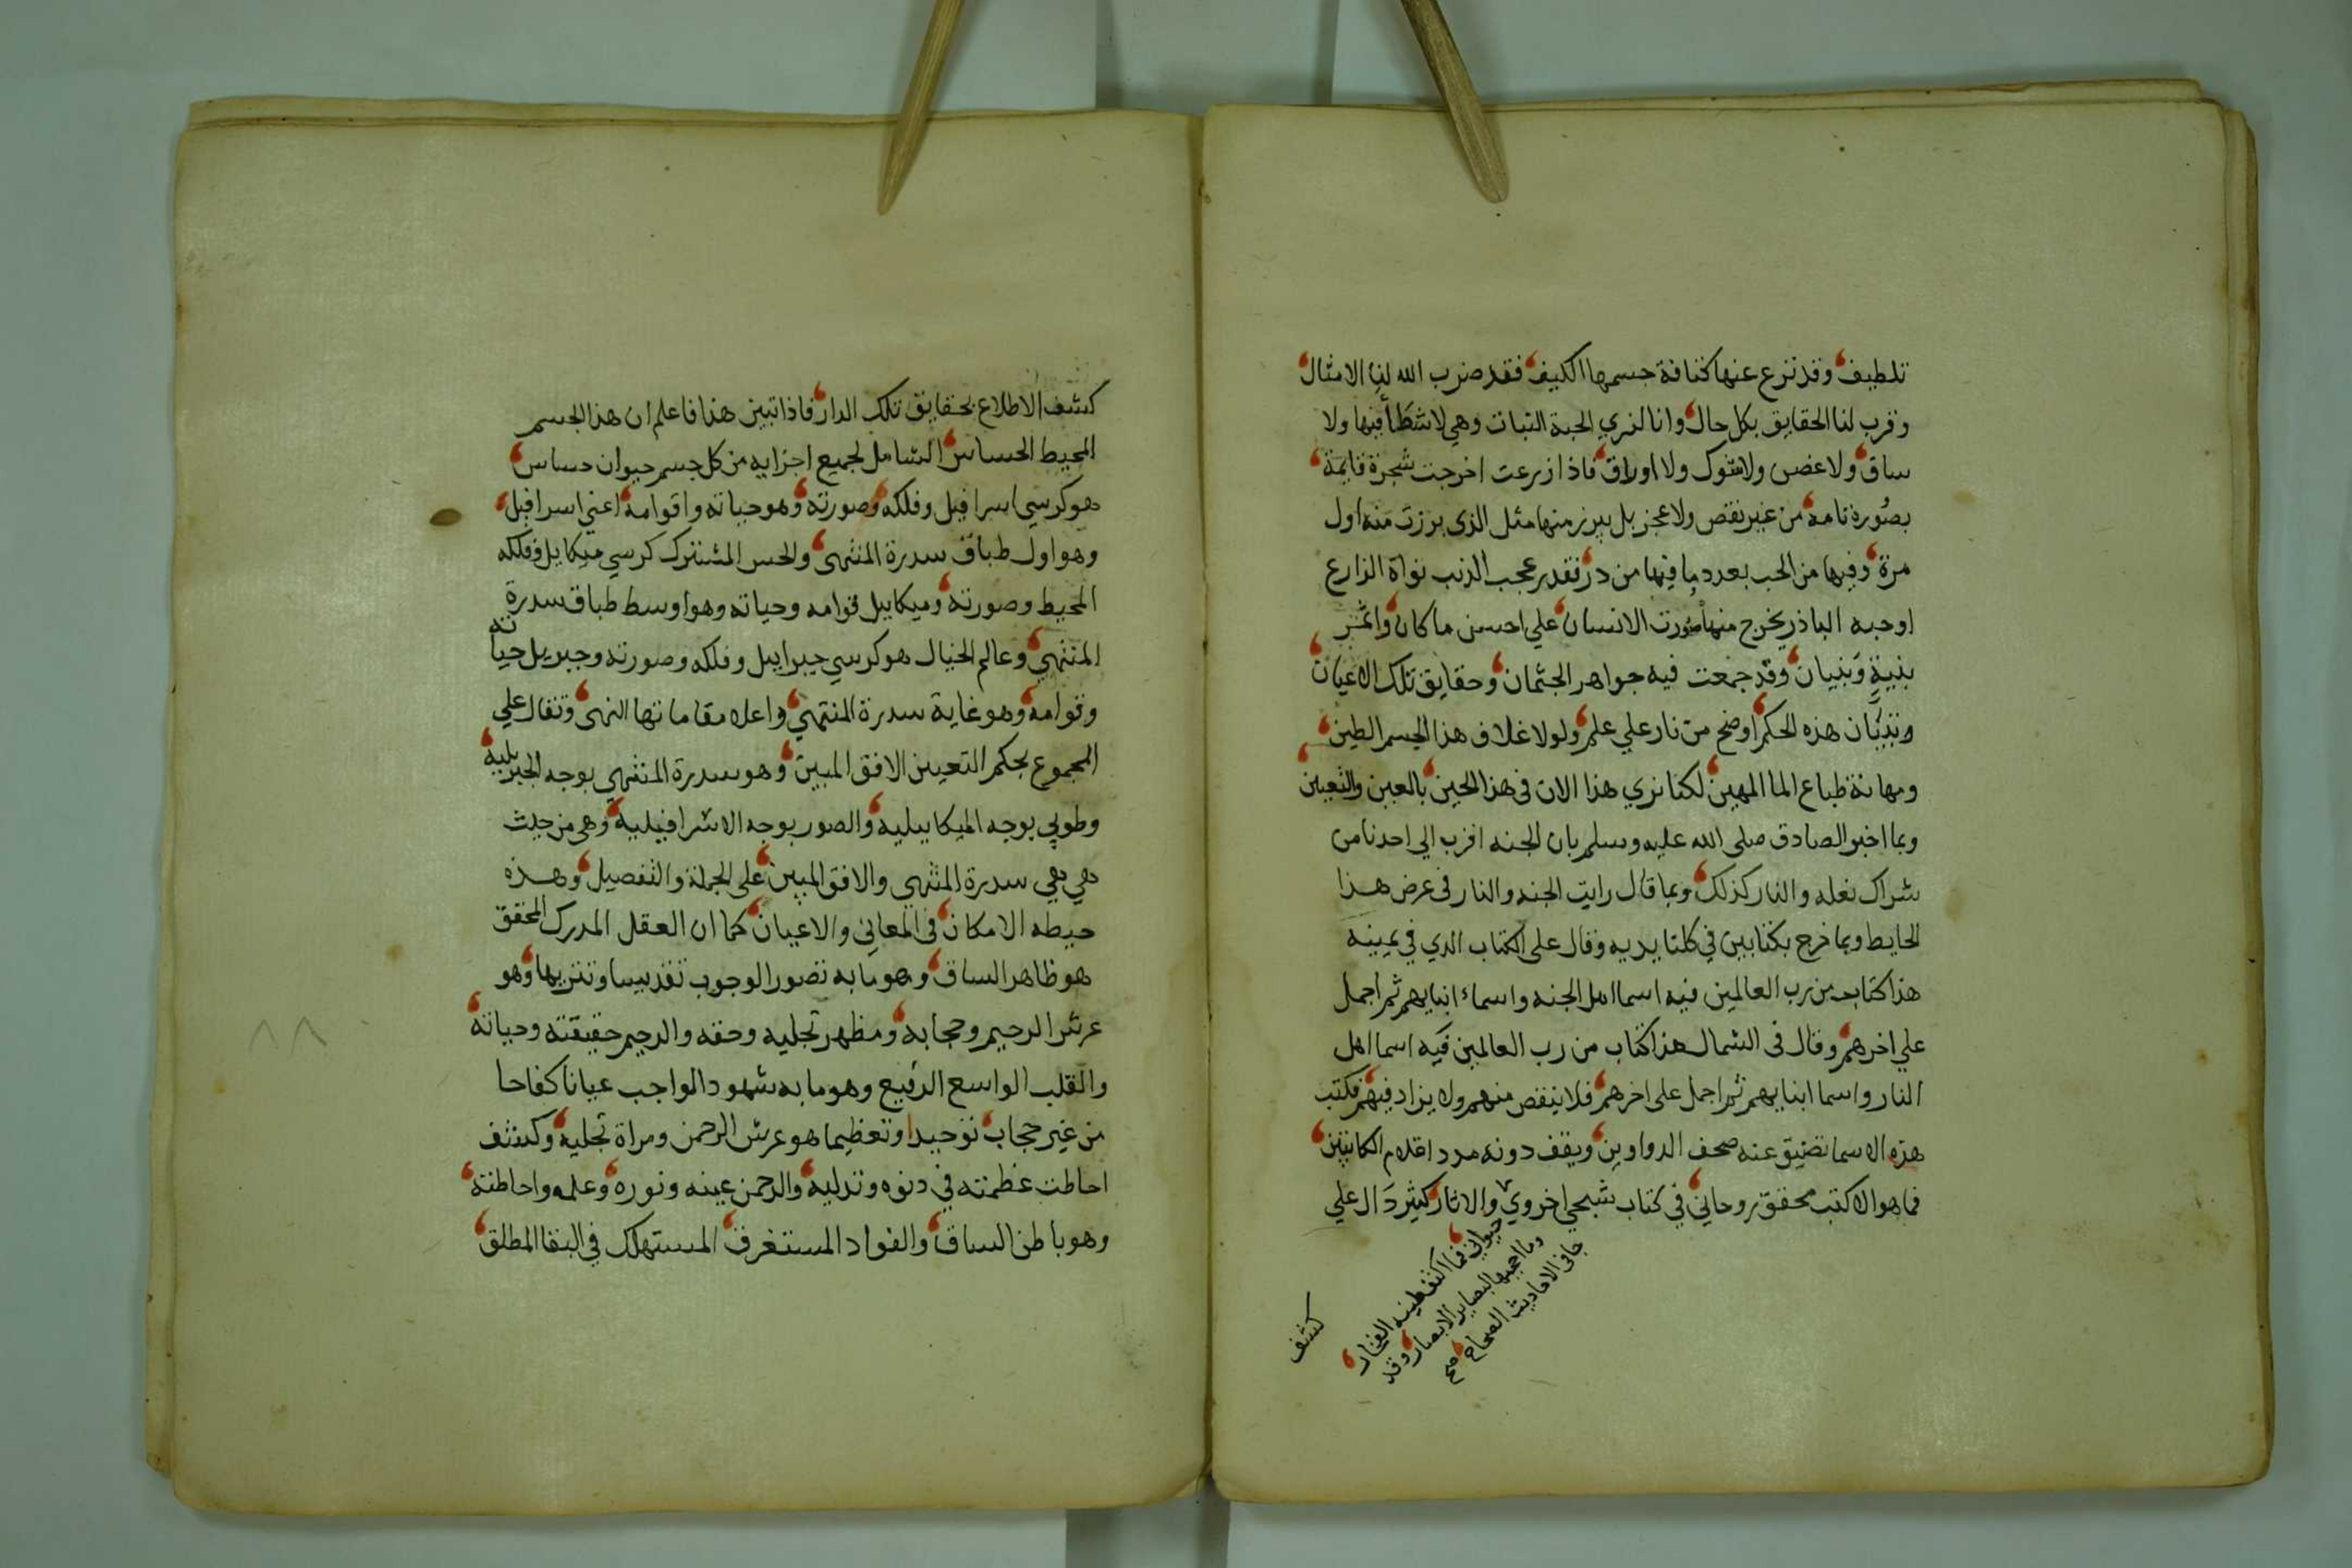 تلطيف وقد نزع عنها كثافة جسمها الكثيف فقد ضرب الله لنا الامثال
وقرب لنا الحقايق بكل حال وانا لنري الحبة النبات وهي لا شطأ فيها ولا
ساق ولا غصن ولا شوك ولا اوراق فاذا زرعت اخرجت شجرة قايمة
بصورة تامه من غير نقص ولا عجز بل يبرز منها مثل الذي برزت منه اول
مرة وفيها من الحب بعدد ما فيها من در فقدر عجب الذنب نواة الزارع
اوحبه الباذر يخرج منها صورت الانسان علي احسن ما كان واثمر
بنية وبنيان وقد جمعت فيه جواهر الجثمان وحقايق تلك الاعيان
وتبيان هذه الحكم اوضح من نار علي علم ولولا غلاف هذا الجسم الطين
ومهانة طباع الما المهين لكنا نري هذا الان في هذا الحين بالعين والتعيين
وبما اخبر الصادق صلى الله عليه وسلم بان الجنه اقرب الي احدنا من
شراك نعله والنار كذلك وبما قال رايت الجنه والنار في عرض هذا
الحايط وبما خرج بكتابين في كلتا يديه وقال على الكتاب الذي في يمينه
هذا كتاب من رب العالمين فيه اسما اهل الجنه واسماء ابايهم ثم اجمل
علي اخرهم وقال في الشمال هذا كتاب من رب العالمين فيه اسما اهل
النار واسما ابايهم ثم اجمل على اخرهم فلا ينقص منهم ولا يزاد فيهم فكتب
هذه الاسما تضيق عنه صحف الدواوين ويقف دونه مدد اقلام الكاتبين
فما هو الا كتب محقق روحاني في كتاب شبحي اخروي والاثار كثير دال علي
حيواني فما اكثف طينه الفخار
وما احجبها لبصاير الابصار وقد
جا في الاحاديث الصحاح صح
كشف
كشف الاطلاع بحقايق تلك الدار فاذا تبين هذا فاعلم ان هذا الجسم
المحيط الحساس الشامل لجميع اجزايه من كل جسم حيوان حساس
هو كرسي اسرافيل وفلكه وصورته وهو حياته واقوامه اعني اسرافيل
وهو اول طباق سدرة المنتهى والحس المشترك كرسي ميكايل وفلكه
المحيط وصورته وميكاييل قوامه وحياته وهو اوسط طباق سدرة
المنتهي وعالم الخيال هو كرسي جبراييل وفلكه وصورته وجبريل حياته
وقوامه وهو غاية سدرة المنتهي واعلا مقاماتها النهى وتقال علي
المجموع بحكم التعيين الافق المبين وهو سدرة المنتهي بوجه الجبريليه
وطوبي بوجه الميكاييليه والصور بوجه الاسرافيليه وهي من حيث
هي هي سدرة المنتهي والافق المبين على الجملة والتفصيل وهذه
حيطه الامكان في المعاني والاعيان كما ان العقل المدرك المحقق
هو ظاهر الساق وهو ما به تصور الوجوب تقديسا وتنزيها وهو
عرش الرحيم وحجابه ومظهر تجليه وحقه والرحيم حقيقته وحياته
والقلب الواسع الرفيع وهو ما به شهود الواجب عيانا كفاحا
من غير حجاب توحيدا وتعظيما هو عرش الرحمن ومراة تجليه وكشف
احاطت عظمته في دنوه وتدليه والرحمن عينه ونوره وعلمه واحاطته
وهو باطن الساق والفواد المستغرق المستهلك في البقا المطلق